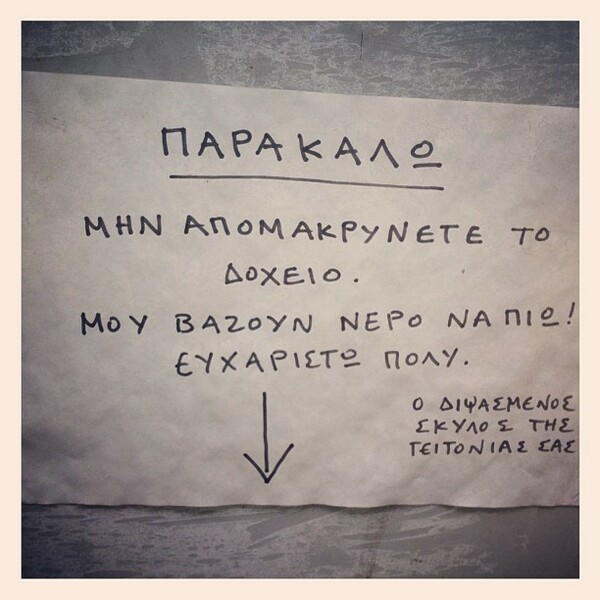 ΠΑΡΑΚΑΛΩ
ΜΗΝ ΑΠΟΜΑΚΡΥΝΕΤΕ ΤΟ
ΔΟΧΕΙΟ.
ΜΟΥ ΒΑΖΟΥΝ ΝΕΡΟ ΝΑ ΠΙΩ!
ΕΥΧΑΡΙΣΤΩ ΠΟΛΥ.
Ο ΔΙΨΑΣΜΕΝΟΣ
ΣΚΥΛΟΣ ΤΗΣ
ΓΕΙΤΟΝΙΑΣ ΣΑΣ